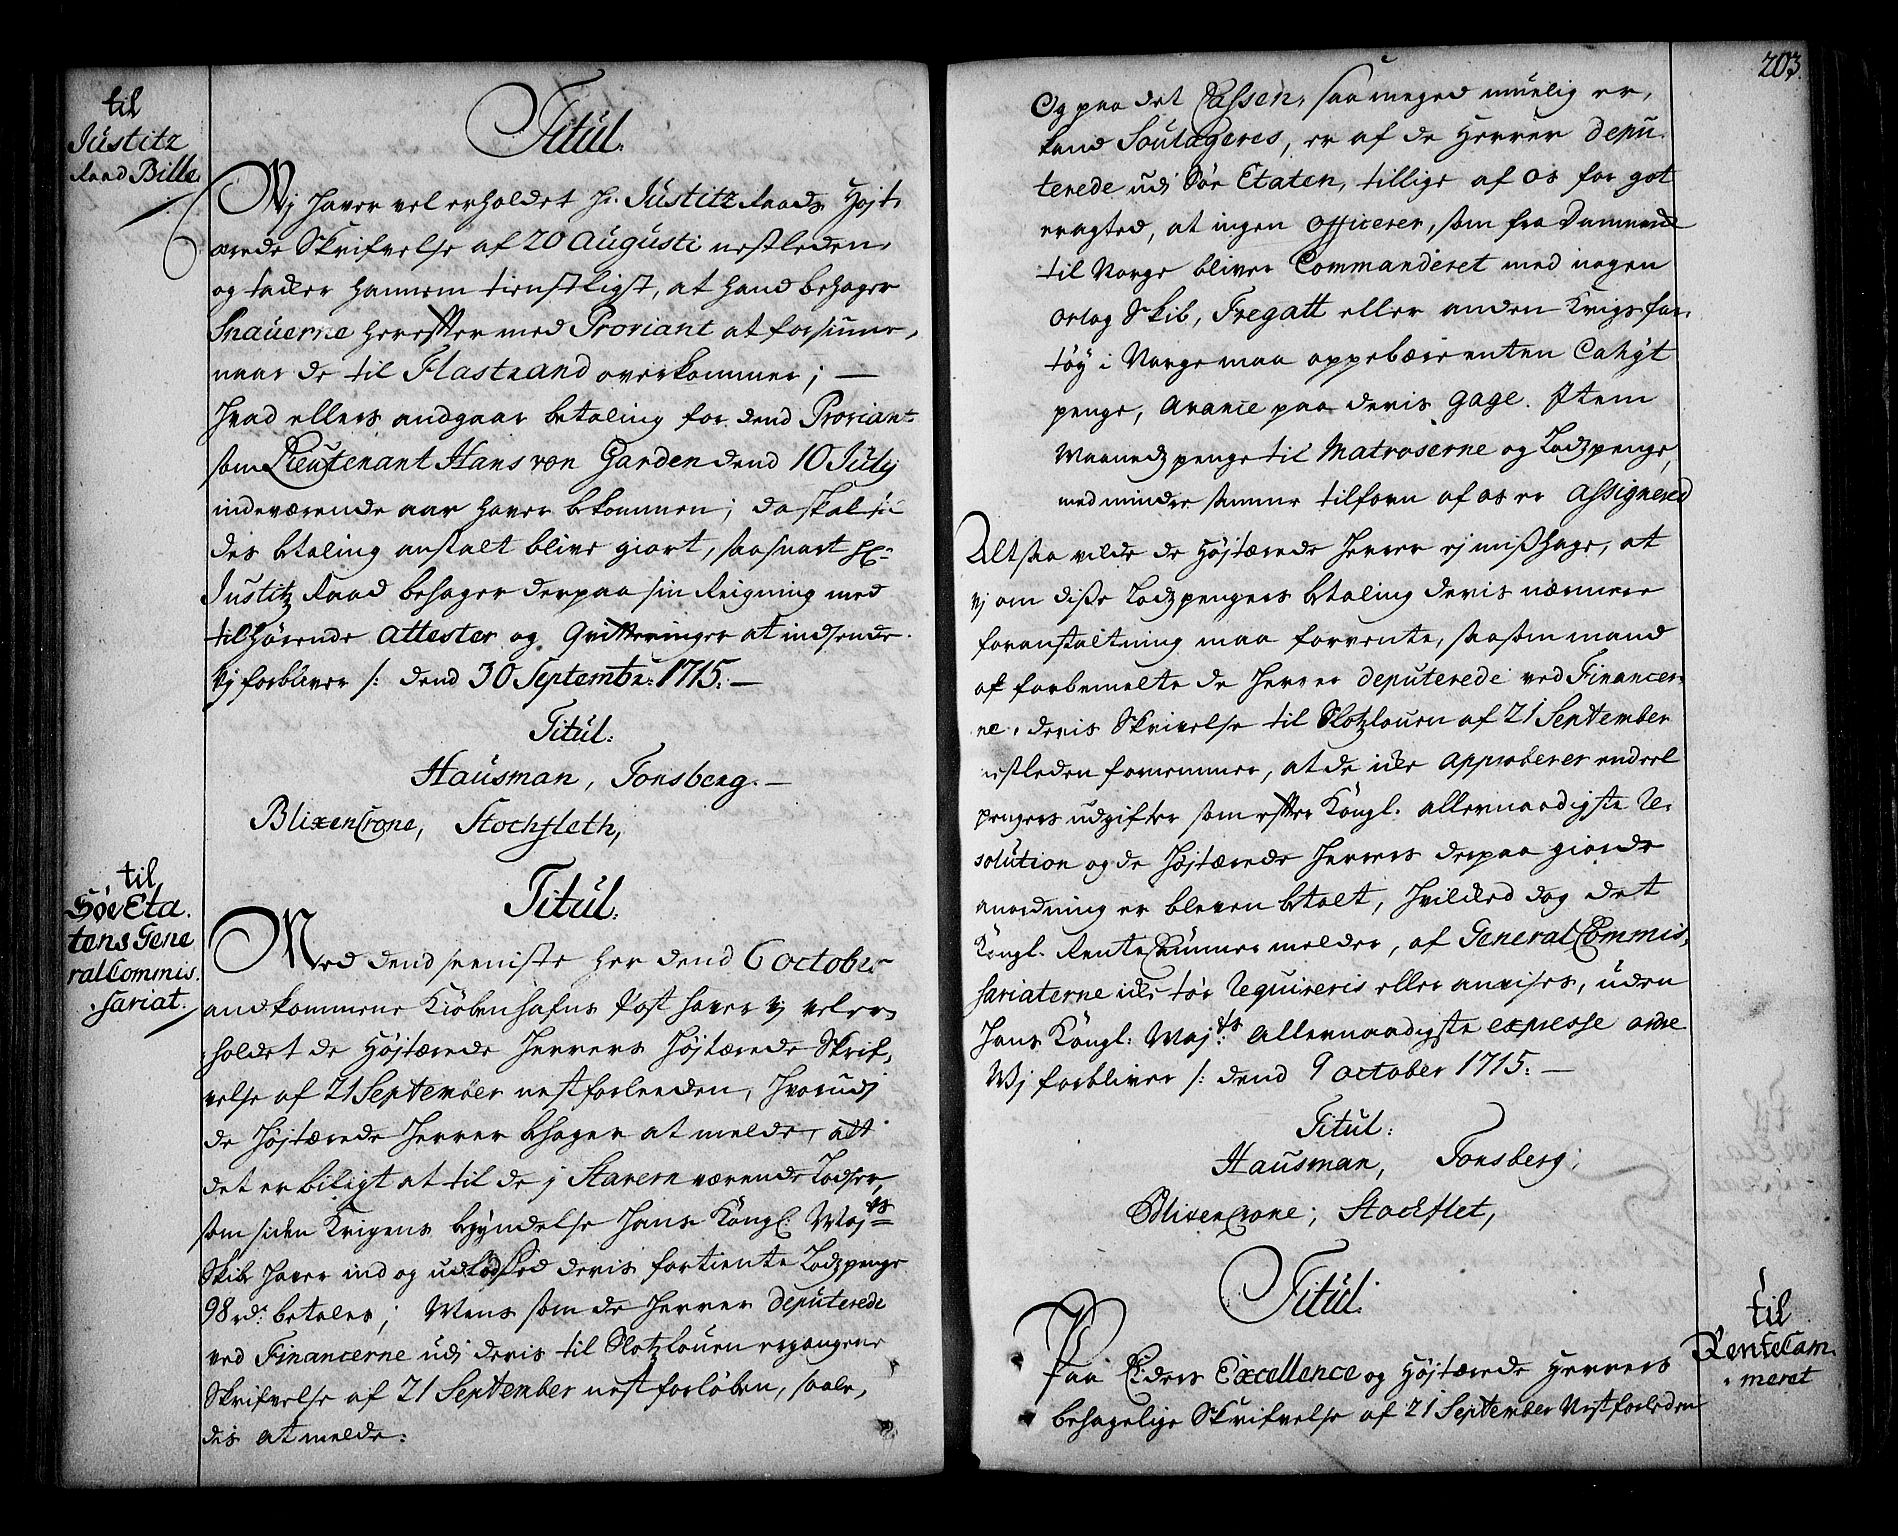 til
Justitz
Raad Bille
Titul.
Vj haver vel erholdet Hr. Justitz Raads Højt
ærede Skrifvelse af 20 Augusti nestleden,
og tacker hannem tienstligst, at hand behager
Snauerne herefter med Proviant at forsiune,
naar de til Flastrand overkommer; —
Hvad ellers andgaar betaling for dend Proviant
som Lieutenant Hans von Garden dend 10 July
indeværende aar haver bekommen; da skal
des btaling anstalt blive giort, saasnart Hr.
Justitz Raad behager derpaa sin Reigning med
tilhørende attester og Qvitteringer at indsende.
Vj forbliver /: dend 30 Septembr: 1715. —
Titul:
Hausman, Tonsberg. —
BlixenCrone, Stochfleth,
til
Søe Eta-
tens Gene
ral Commis
sariat.
Titul.
Med dend seeniste her dend 6 octobr
andkommene Kiøbenhafns Post haver vj veler-
holdet de Højtærede Herrers Højtærede Skrif-
velse af 21 September nestforleeden, hvorudj
de Højtærede Herrer bhager at melde, att
det er biligt at til de j Stavern værende Lodser,
som siden Krigens bgyndelse Hans Kongl: Majts
Skibe haver ind og ud lodsed deris fortiente Lodzpenge
98 rd: betales; Mens som de Herrer deputerede
ved Financerne udi deris til Slotzlouen ergangene
Skrifvelse af 21 September nestforløben, saale,
dis at melde:
203.
Og paa det Cassen, saa meged muelig er,
kand Soulageres, er af de Herrer depu-
terede udi Søe Etaten, tillige af os for got
eragted, at ingen officerer, som fra Danmarck
til Norge bliver Commanderet med nogen
Orlog Skib, Fregatt eller anden Krigs far,
tøy i Norge maa oppebære enten Cahyt
penge, avance paa deris gage. Item
Maanedz penge til Matroserne og Lodzpenge,
med mindre samme tilforn af os er assignered
Altsaa vilde de Højtærede Herrer ej mishage, at
vj om disse Lodzpengers btaling deris nærmere
foranstaltning maa forvente, saasom mand
af forbemelte de Herrer deputerede ved Financer-
ne, deris Skrivelse til Slotzlouen af 21 September
nestleden fornemmer, at de icke approberer endeel
pengers udgifter som efter Kongl. allernaadigste Re-
solution og de Højtærede Herrers derpaa giorde
anordning er bleven btalt, hvilcked dog det
Kongl. Rente Kammer melder, af General Commis-
sariaterne icke tør reqvireris eller anvises, uden
Hans Kongl: Majts: allernaadigste expresse ordre
Vj forbliver /: dend 9 october 1715: —
Titul:
Hausman, Tonsberg;
BlixenCrone; Stockflet,
til
RenteCam-
meret
Titul:
Paa Eders Excellence og Højtærede Herrers
behagelige Skrifvelse af 21 September Nestforleden